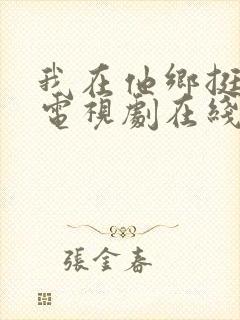 我在他鄉挺
電視劇在綫
張金春